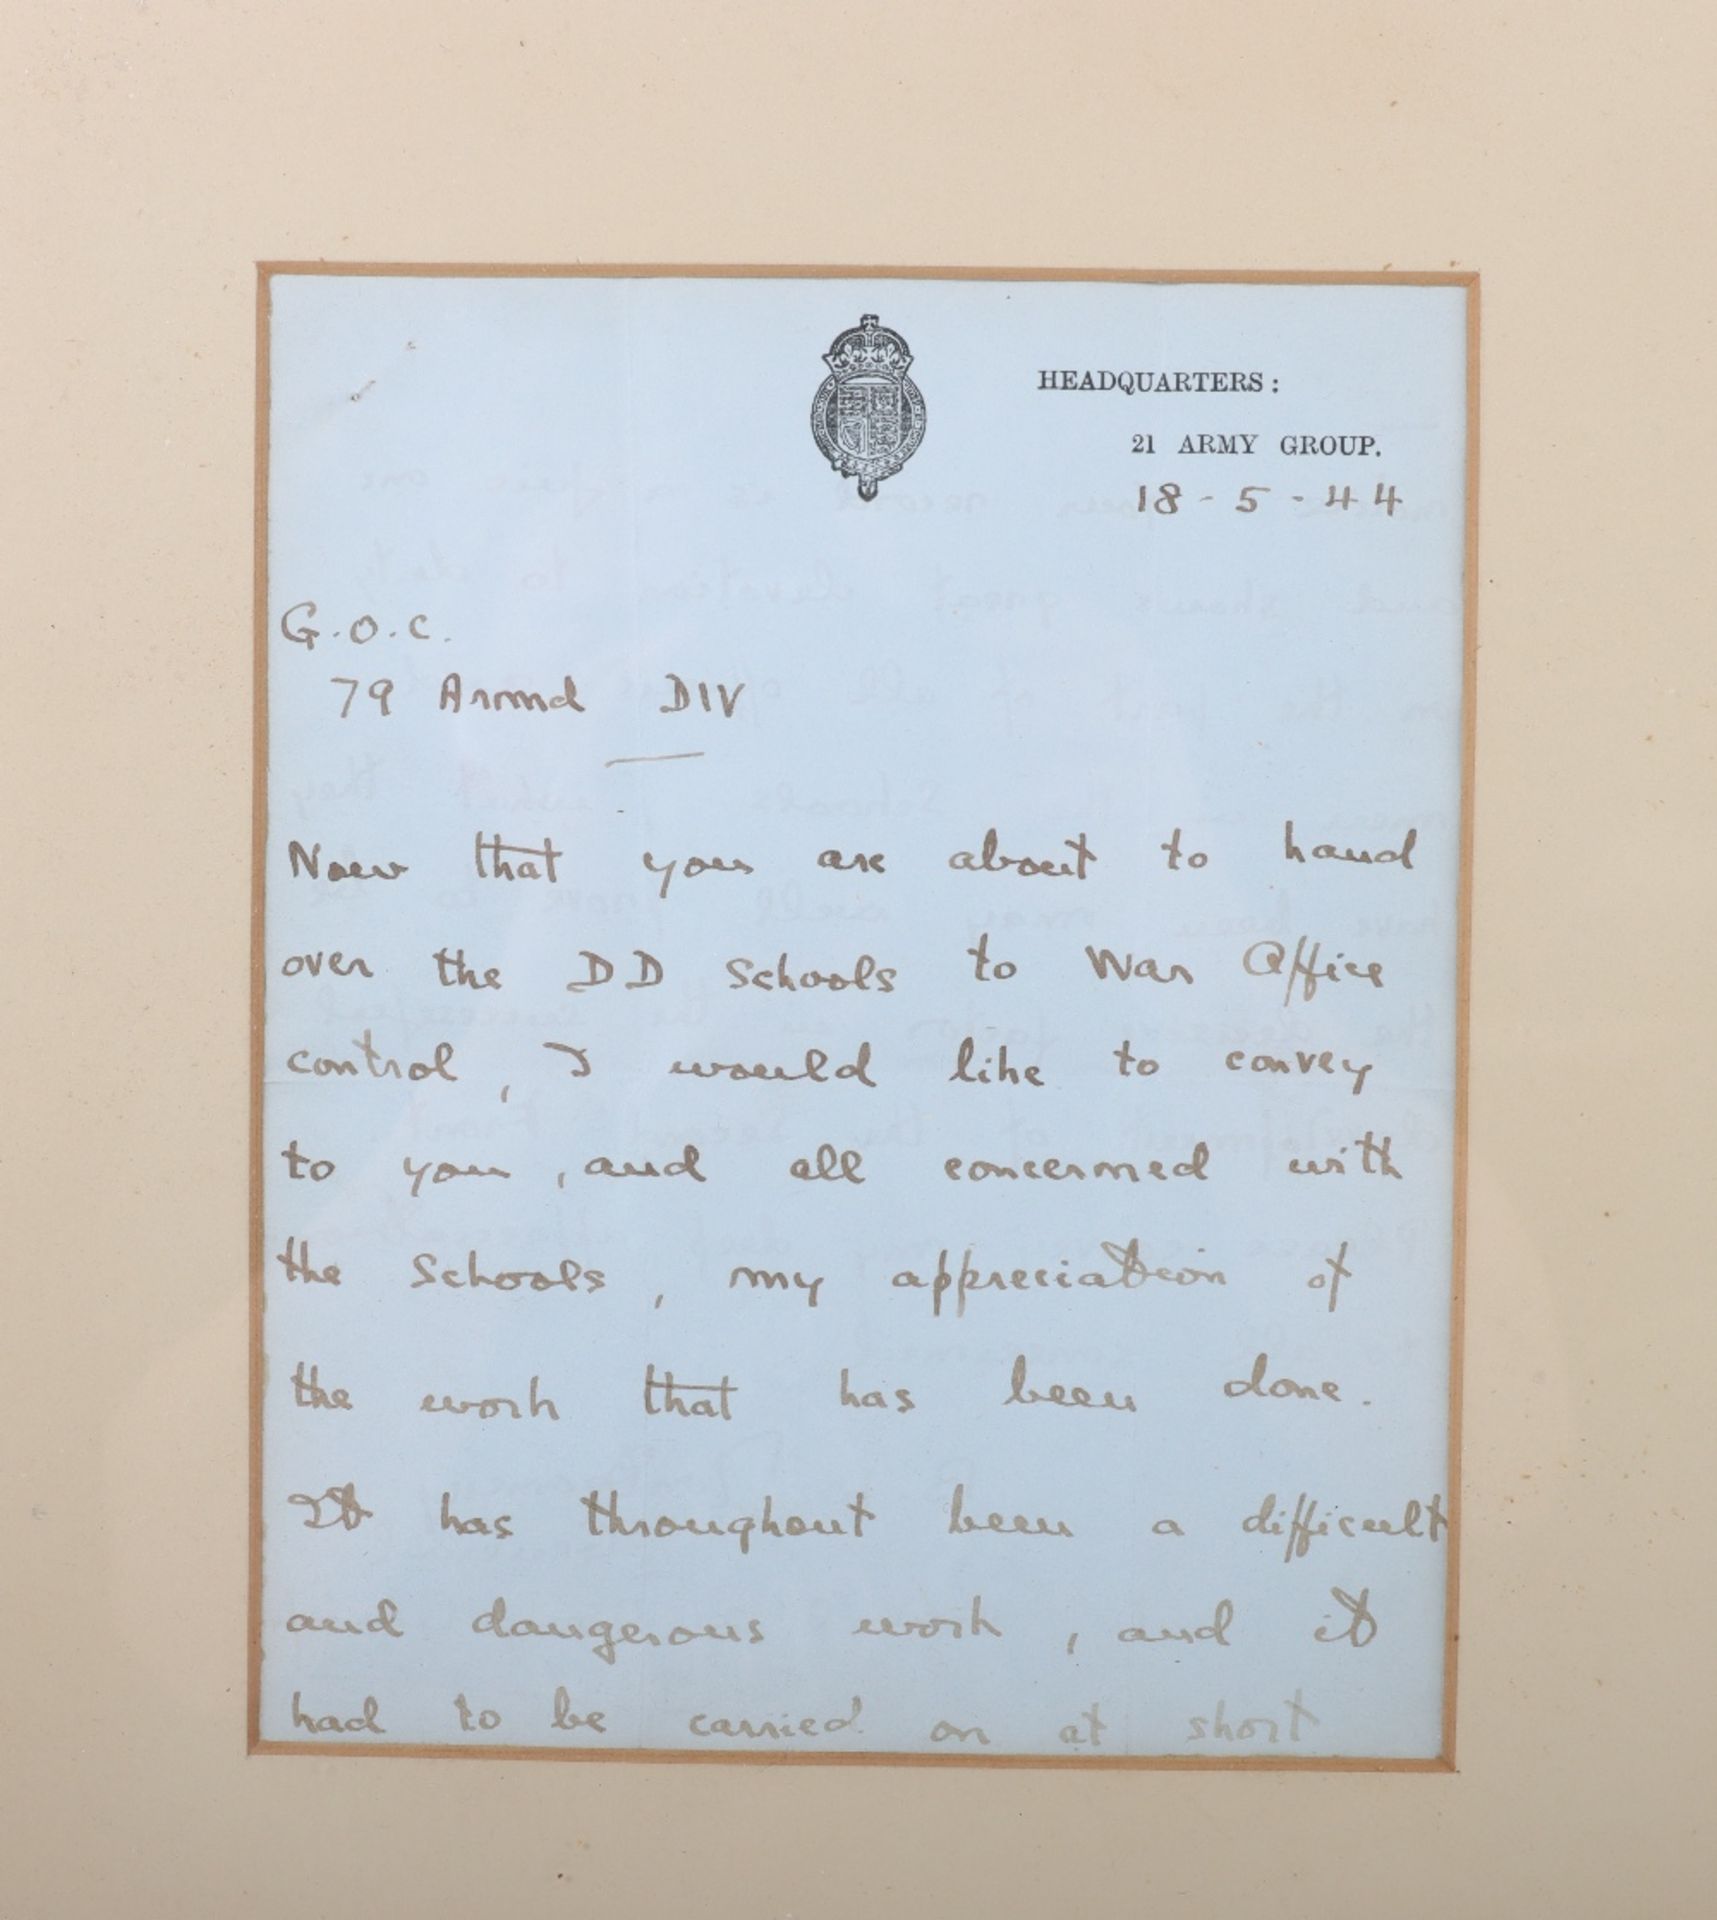 HEADQUARTERS:
21 ARMY GROUP.
18-5-44
G.O.C.
79 Armd DIV
Now that you are about to hand
over the DD Schools to War Office
control, I would like to convey
to you, and all concerned with
the Schools, my appreciation of
the work that has been done.
It has throughout been a difficult
and dangerous work, and it
had to be carried on at short